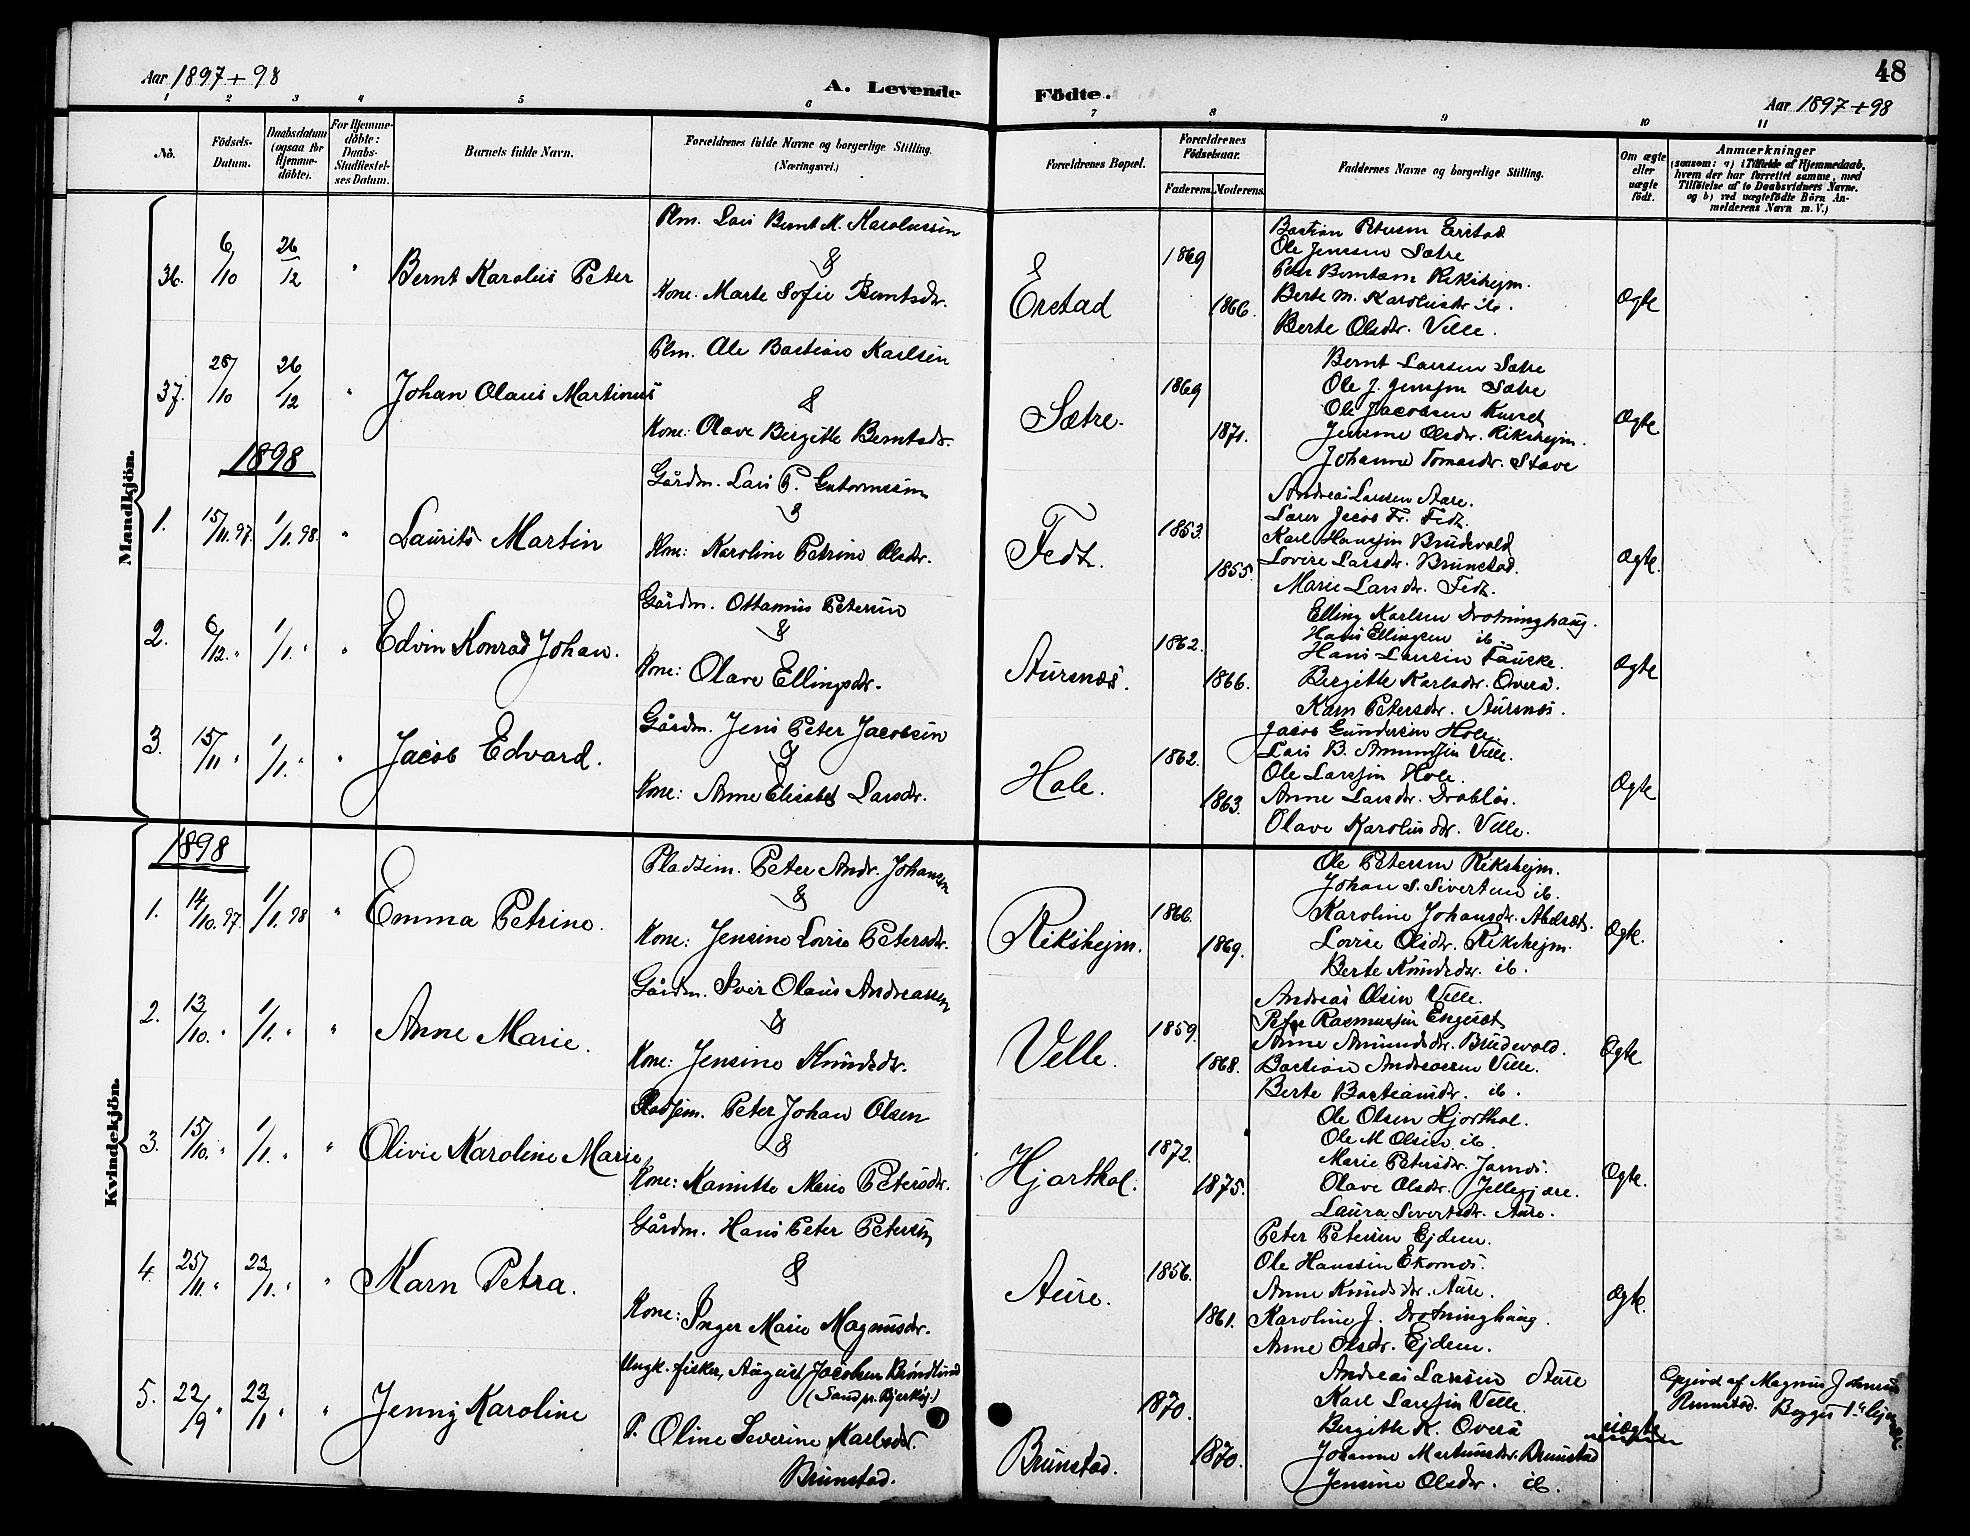 Aar 1897 + 98
A. Levende Födte.
48
Aar 1897 + 98
1 2 3 4 5 6 7 8 9 10 11
No.
Födsels-Datum.
Daabsdatum (ogsaa for Hjemme-döbte).
For Hjemme-döbte: Daabs-Stadfæstel-ses Datum.
Barnets fulde Navn.
Forældrenes fulde Navne og borgerlige Stilling.
(Næringsvei.)
Forældrenes Bopæl.
Forældrenes Födselsaar.
Faderens. Moderens.
Faddernes Navne og borgerlige Stilling.
Om ægte eller uægte födt.
Anmærkninger
(saasom: a) i Tilfælde af Hjemmedaab,
hvem der har forrettet samme, med
Tilföielse af to Daabsvidners Navne.
og b) ved uægtefödte Börn An-
melderens Navn m. V.)
Mandkjön.
36. 6/10 26/12 " Bernt Karolus Peter
Plm. Lars Bernt M. Karolussen
&
Kone. Marte Sofie Berntsdr.
Erstad 1869 1866.
Bastian Petersen Erstad
Ole Jenssen Sætre
Peter Berntsen Rekshejm.
Berte M. Karolusdr. ib.
Berte Olsdr. Velle.
Ægte
37. 28/10 26/12 " Johan Olaus Martinus
Plm. Ole Bastian Karlsen
&
Kone: Olave Bergitte Berntsdr.
Sætre. 1869 1871.
Bernt Larssen Sætre
Ole J. Jenssen Sætre
Ole Jacobsen Kurset
Jensine Olsdr. Rikshejm.
Johanne Tomasdr. Stave
Ægte
1898
1. 15/11.97. 1/1.98 " Laurits Martin
Gårdm. Lars P. Gutormssen
&
Kone: Karoline Petrine Olsdr.
Fedt. 1853. 1855.
Andreas Larsen Aure.
Lærer Jacob Fr. Fedt.
Karl Hanssen Brudevold
Lovise Larsdr. Brunstad.
Marie Larsdr. Fedt.
Ægte.
2. 6/12. " 1/1. " " Edvin Konrad Johan.
Gårdm. Ottamus Petersen
&
Kone: Olave Ellingsdr.
Aursnæs. 1862. 1866.
Elling Karlsen Drotninghaug.
Hans Ellingsen ib.
Hans Larssen Fauske.
Bergitte Karlsdr. Overå.
Karn Petersdr. Aursnæs.
Ægte
3. 15/11 " 1/1. " " Jacob Edvard.
Gårdm. Jens Peter Jacobsen
&
Kone: Anne Elisabet Larsdr.
Hole. 1862. 1863.
Jacob Gundersen Hole.
Lars B. Amundsen Velle.
Ole Larssen Hole.
Anne Larsdr. Drabløs.
Olave Karolusdr. Velle.
Ægte
Kvindekjön.
1898
1. 14/10.97. 1/1.98 " Emma Petrine.
Pladsm. Peter Andr. Johansen
&
Kone: Jensine Lovise Petersdr.
Rikshejm. 1866. 1869.
Ole Petersen Rikshejm.
Johan S. Sivertsen ib.
Karoline Johansdr. Abelsæt.
Lovise Olsdr. Rikshejm.
Berte Knudsdr. ib.
Ægte.
2. 13/10. " 1/1. " " Anne Marie.
Gårdm. Iver Olaus Andreassen
&
Kone: Jensine Knudsdr.
Velle. 1859. 1868.
Andreas Olsen Velle.
Peter Rasmussen Engeset
Anne Amundsdr. Brudevold.
Bastian Andreassen Velle.
Berte Bastiansdr. ib.
Ægte
3. 15/10. " 1/1. " " Olivie Karoline Marie
Pladsem. Peter Johan Olsen
&
Kone: Kanutte Marie Petersdr.
Hjorthol. 1872. 1875.
Ole Olsen Hjorthol.
Ole M Olsen ib.
Marie Petersdr. Jarnes.
Olave Olsdr. Jellesjære.
Laura Sivertsdr. Aure.
Ægte.
4. 25/11. " 23/1. " " Karn Petra.
Gårdm. Hans Peter Petersen
&
Kone: Inger Marie Magnusdr.
Aure. 1856. 1861.
Peter Petersen Ejdem.
Ole Hanssen Ekornæs.
Anne Knudsdr. Aure.
Karoline J. Drotninghaug.
Anne Olsdr. Ejdem.
Ægte.
5. 22/9 " 23/1 " " Jenny Karoline
Ungk. fisker, August Jacobsen Bröndlund
(Sand pr. Bjerköy.)
P. Oline Severine Karlsdr.
Brunstad.
Brunstad. 1870. 1870.
Andreas Larssen Aure
Karl Larssen Velle.
Bergitte K. Overå
Johanne Martinusdr. Brunstad
Jensine Olsdr. ib.
uægte
Opgivod af Magnus Johnsen
Runnstad. Begges 1ste